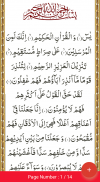 بِسْمِ اللهِ الرَّحْمٰنِ الرَّحِيْمِ
يٰسٓ ۚ وَالْقُرْاٰنِ الْحَكِيْمِ ۙ اِنَّكَ لَمِنَ
الْمُرْسَلِيْنَ ۙ عَلٰى صِرَاطٍ مُّسْتَقِيْمٍ ؕ
تَنْزِيْلَ الْعَزِيْزِ الرَّحِيْمِ ۙ لِتُنْذِرَ
قَوْمًا مَّاۤ اُنْذِرَ اٰبَآؤُهُمْ فَهُمْ غٰفِلُوْنَ
لَقَدْ حَقَّ الْقَوْلُ عَلٰۤى اَكْثَرِهِمْ
فَهُمْ لَا يُؤْمِنُوْنَ اِنَّا جَعَلْنَا فِيْۤ
اَعْنَاقِهِمْ اَغْلٰلًا فَهِيَ اِلَى الْاَذْقَانِ
فَهُمْ مُّقْمَحُوْنَ وَجَعَلْنَا مِنْۢ بَيْنِ اَيْدِيْهِمْ
سَدًّا وَّمِنْ خَلْفِهِمْ سَدًّا فَاَغْشَيْنٰهُمْ
فَهُمْ لَا يُبْصِرُوْنَ وَسَوَآءٌ عَلَيْهِمْ
Page Number : 1 / 14